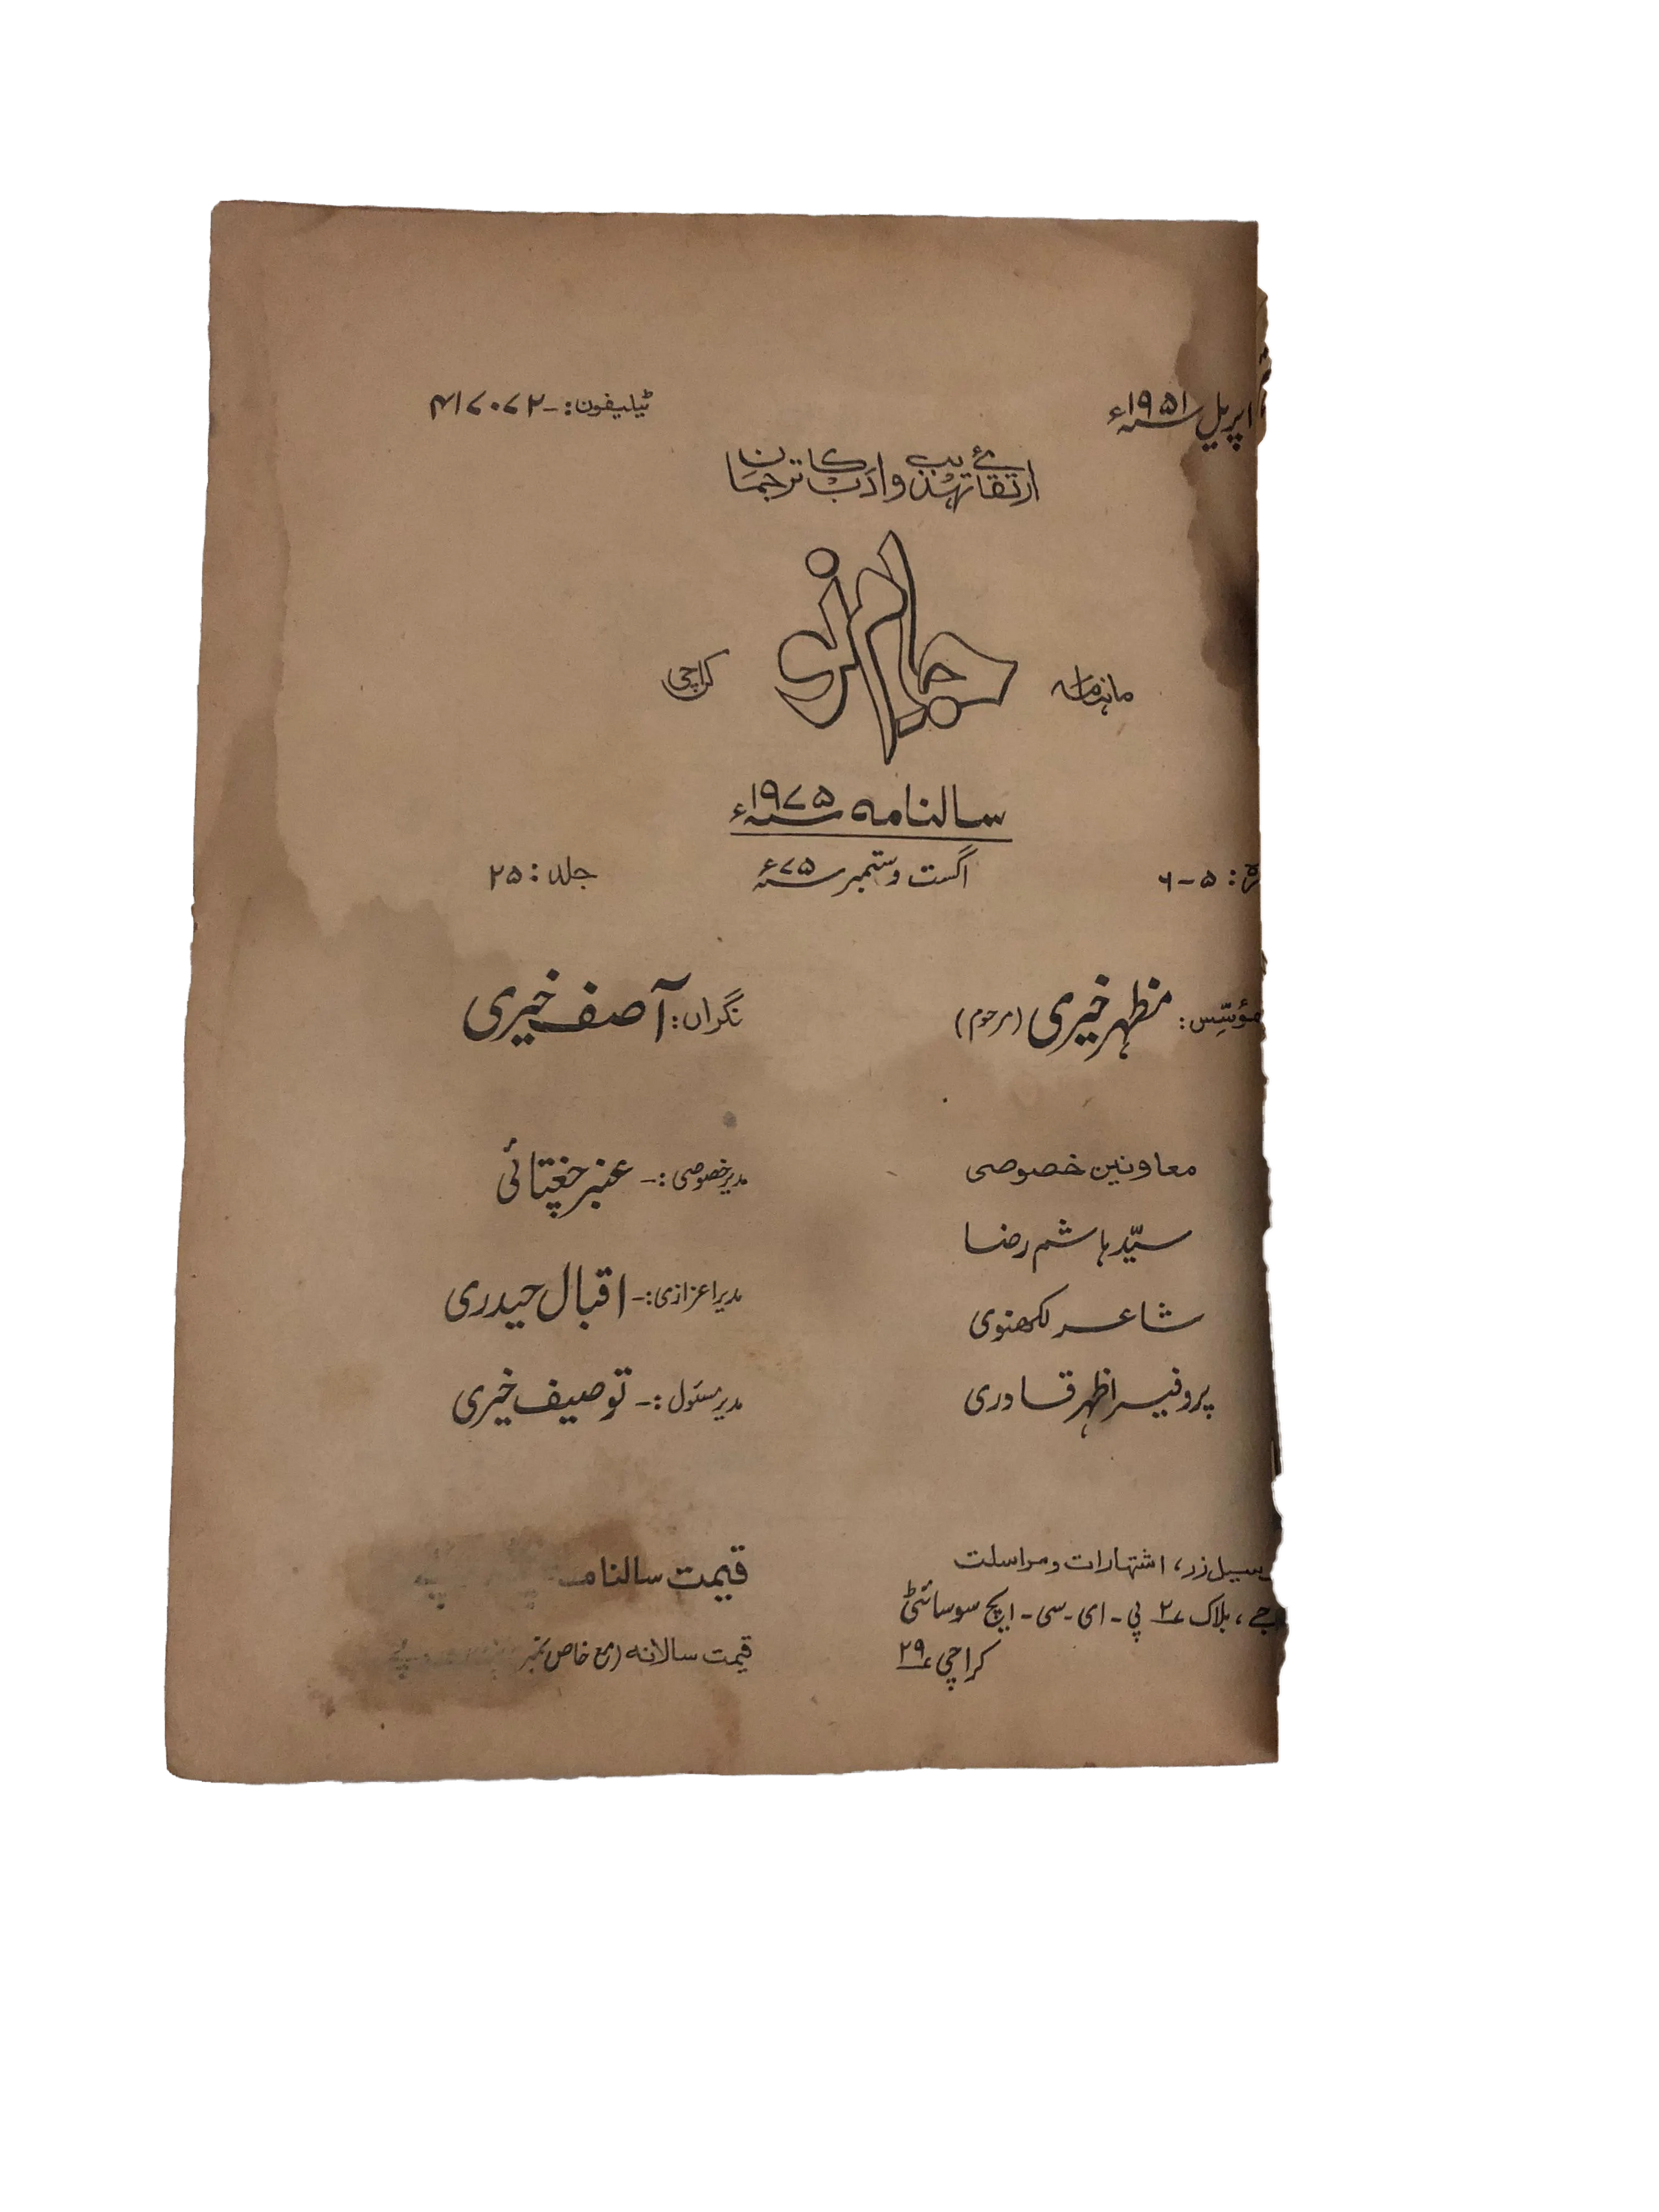 اپریل ۱۹۵۱ء
ٹیلیفون:- ۴۱۷۰۷۲
ارتقائے تہذیب و ادب کا ترجمان
ماہنامہ جامِ نو کراچی
سالنامہ ۱۹۷۵ء
۵-۶ اگست و ستمبر ۷۵ء جلد: ۲۵
مؤسّس: مظہر خیری (مرحوم) نگراں: آصف خیری
معاونین خصوصی
سیّد ہاشم رضا
شاعر لکھنوی
پروفیسر اظہر قادری
مدیر خصوصی:- عنبر چغتائی
مدیر اعزازی:- اقبال حیدری
مدیر مسئول:- توصیف خیری
زر، اشتہارات و مراسلت
جے، بلاک ۲ پی-ای-سی-ایچ سوسائٹی
کراچی ۲۹
قیمت سالنامہ
قیمت سالانہ (مع خاص نمبر